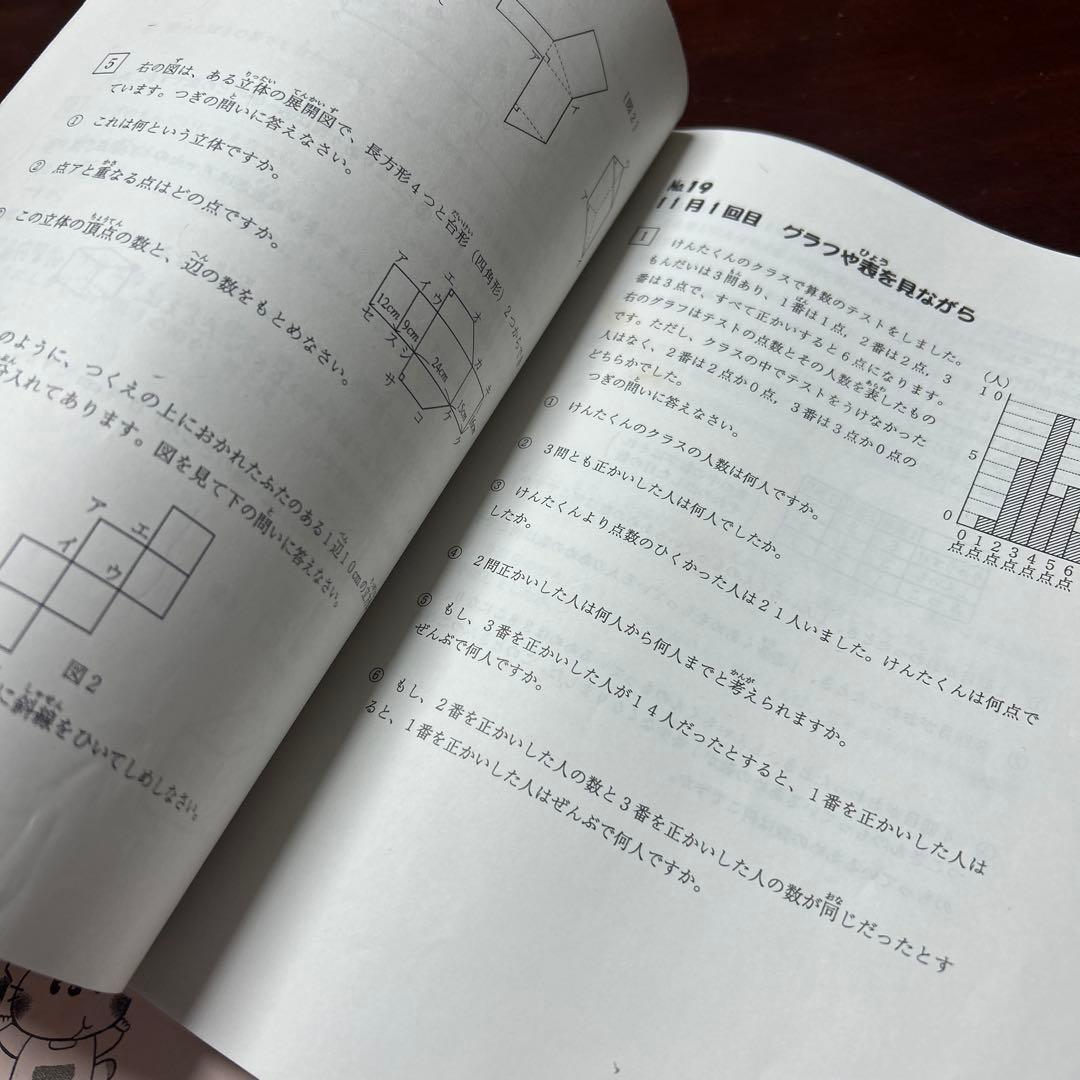 〔図2〕
ア
イ
5 右の図は、ある立体の展開図で、長方形4つと台形（四角形）2つから
ています。つぎの問いに答えなさい。
① これは何という立体ですか。
② 点アと重なる点はどの点ですか。
この立体の頂点の数と、辺の数をもとめなさい。
ア イ ウ エ オ
カ
キ
ク
コ
サ
シ
ス
セ
12cm 9cm 24cm 15cm
のように、つくえの上におかれたふたのある1辺10cmの
分入れてあります。図を見て下の問いに答えなさい。
ア
イ
ウ
エ
図2
に斜線をひいてしめしなさい。
№19
11月1回目 グラフや表を見ながら
1 けんたくんのクラスで算数のテストをしました。
もんだいは3問あり、1番は1点，2番は2点，3
番は3点で、すべて正かいすると6点になります。
右のグラフはテストの点数とその人数を表したもの
です。ただし、クラスの中でテストをうけなかった
人はなく、2番は2点か0点，3番は3点か0点の
どちらかでした。
つぎの問いに答えなさい。
① けんたくんのクラスの人数は何人ですか。
② 3問とも正かいした人は何人でしたか。
③ けんたくんより点数のひくかった人は21人いました。けんたくんは何点で
したか。
④ 2問正かいした人は何人から何人までと考えられますか。
⑤ もし、3番を正かいした人が14人だったとすると、1番を正かいした人は
ぜんぶで何人ですか。
⑥ もし、2番を正かいした人の数と3番を正かいした人の数が同じだったとす
ると、1番を正かいした人はぜんぶで何人ですか。
（人）
10
5
0
0 1 2 3 4 5 6
点点点点点点点